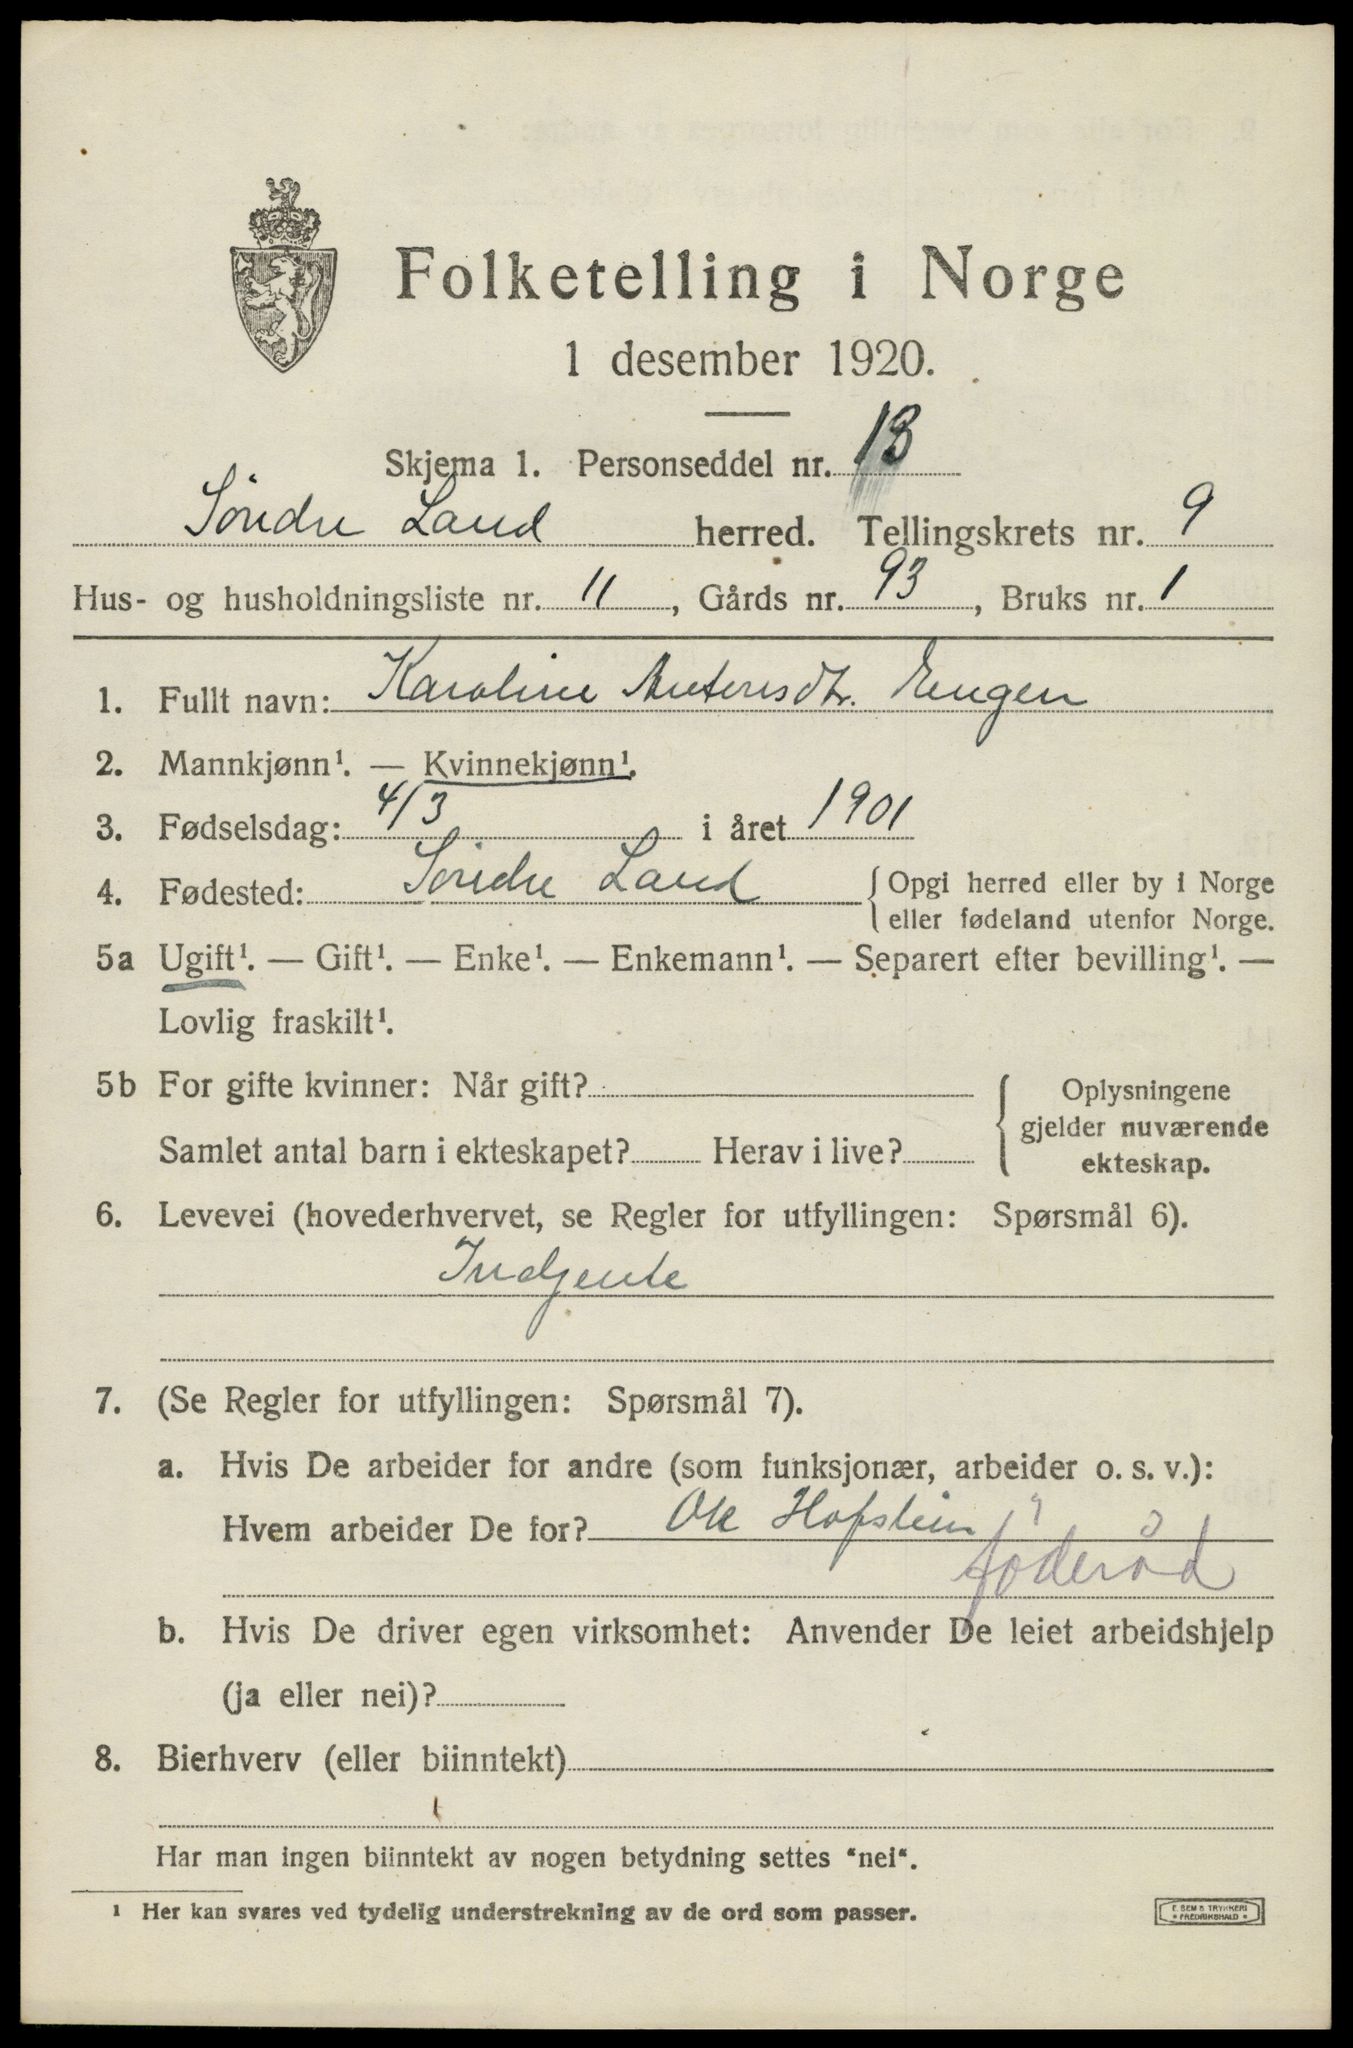 Folketelling i Norge
1 desember 1920.
Skjema 1. Personseddel nr. 13
Söndre Land herred. Tellingskrets nr. 9
Hus- og husholdningsliste nr. 11, Gårds nr. 93, Bruks nr. 1
1. Fullt navn: Karoline Antonsdtr. Engen
2. Mannkjønn¹. — Kvinnekjønn¹.
3. Fødselsdag: 4/3 i året 1901
4. Fødested: Söndre Land {Opgi herred eller by i Norge
eller fødeland utenfor Norge.
5a Ugift¹. — Gift¹. — Enke¹. — Enkemann¹. — Separert efter bevilling¹. —
Lovlig fraskilt¹.
5b For gifte kvinner: Når gift? Oplysningene
gjelder nuværende
Samlet antal barn i ekteskapet? Herav i live? ekteskap.
6. Levevei (hovederhvervet, se Regler for utfyllingen: Spørsmål 6).
Indjente
7. (Se Regler for utfyllingen: Spørsmål 7).
a. Hvis De arbeider for andre (som funksjonær, arbeider o. s. v.):
Hvem arbeider De for? Ole Hofslien
föderåd
b. Hvis De driver egen virksomhet: Anvender De leiet arbeidshjelp
(ja eller nei)?
8. Bierhverv (eller biinntekt)
Har man ingen biinntekt av nogen betydning settes “nei“.
¹ Her kan svares ved tydelig understrekning av de ord som passer.
E. SEM'S TRYKKERI
• FREDRIKSHALD •